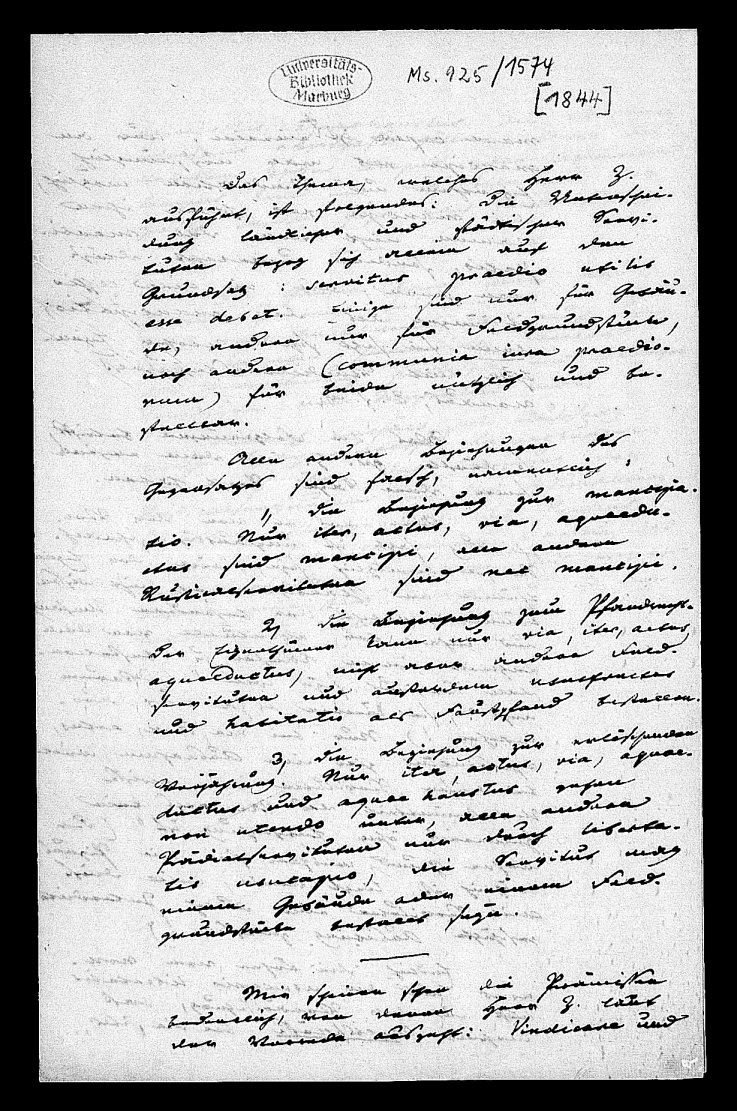 Universitäts-
Bibliothek
Marburg
Ms. 925/1574
[1844]
Das Thema, welches Herr Z.
ausführt, ist folgendes: Die Unterschei-
dung ländlicher und städtischer Servi-
tuten bezog sich allein auf den
Grundsatz: servitus praedio utilis
esse debet. Einige sind nur für Gebäu-
de, andere nur für Feldgrundstücke,
noch andere (communia iura praedio-
rum) für beide nützlich und be-
stellbar.
Alle andern Beziehungen des
Gegensatzes sind falsch, namentlich:
1, die Beziehung zur mancipa-
tio. Nur iter, actus, via, aquaedu-
ctus sind mancipi, alle andern
Rusticalservituten sind nec mancipi.
2, die Beziehung zum Pfandrecht.
Der Eigenthümer kann nur via, iter, actus,
aquaeductus, nicht aber andere Feld-
servituten und außerdem ususfructus
und habitatio als Faustpfand bestellen.
3, die Beziehung zur erlöschenden
Verjährung. Nur iter, actus, via, aquae-
ductus und aquae haustus gehen
non utendo unter, alle andern
Prädialservituten nur durch liberta-
tis usucapio, die Servitus mag
einem Gebäude oder einem Feld-
grundstücke bestellt seyn.
Mir scheinen schon die Prämissen
bedenklich, von denen Herr Z. laut
der Vorrede ausgeht: Vindicare und